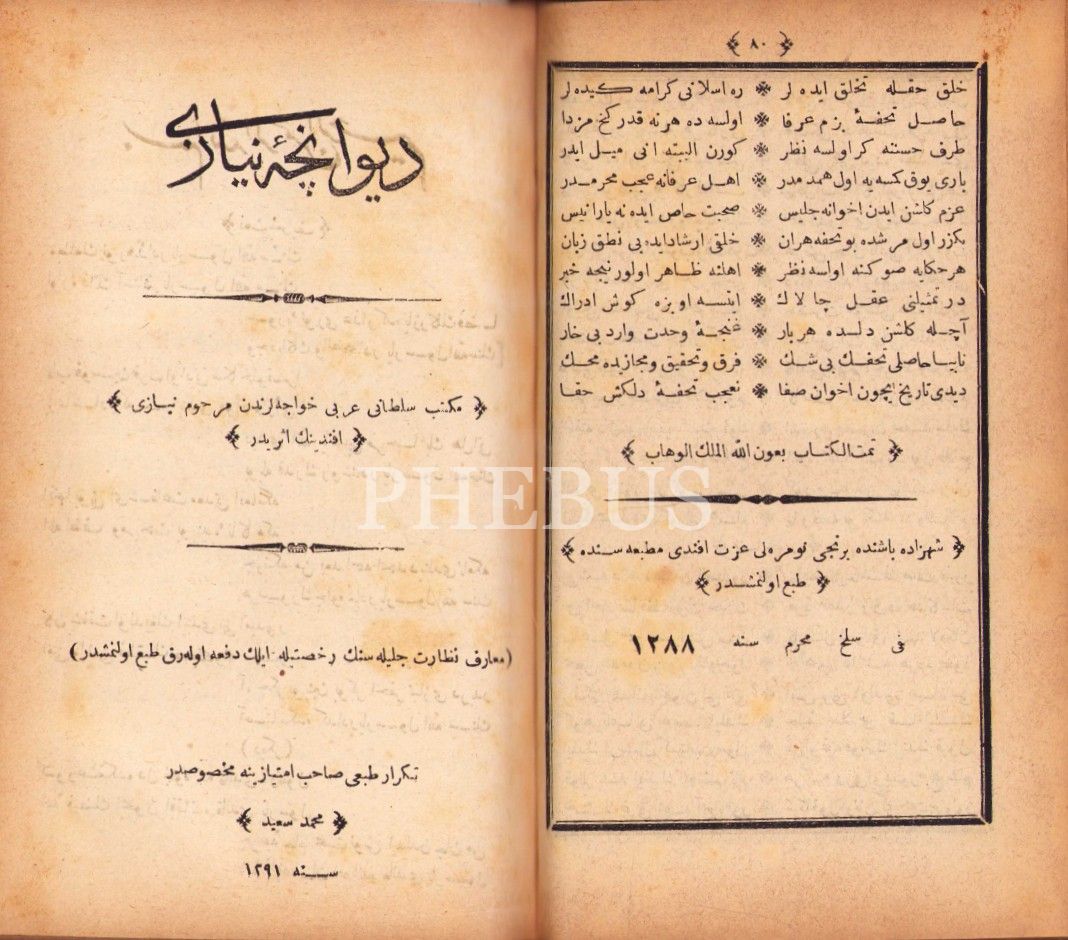 ﴿ ٨٠ ﴾
خلق حقله تخلق ايده لر ❋ ره اسلاتی كرامه كيده لر
حاصل تحفهٔ بزم عرفا ❋ اولسه ده هر نه قدر كج مزدا
طرف حسنته كر اولسه نظر ❋ كورن البته انی ميل ايدر
ياری يوق كمسه يه اول همدمدر ❋ اهل عرفانه عجب محرمدر
عزم كلشن ايدن اخوانه جليس ❋ صحبت خاص ايدنه يار انيس
بكزر اول مرشده بو تحفه هران ❋ خلقی ارشاد ايده بی نطق زبان
هر حكايه صوكنه اولسه نظر ❋ اهلنه ظاهر اولور نيجه خبر
در تمثيلنی عقل چالاك ❋ ايتسه اويزه كوش ادراك
آچله كلشن دلده هر بار ❋ غنجهٔ وحدت وارد بی خار
نابيا حاصلی تحفك بی شك ❋ فرق و تحقيق و مجازيده محك
ديدی تاريخ ايچون اخوان صفا ❋ نعجب تحفهٔ دلكش حقا
﴿ تمت الكتاب بعون الله الملك الوهاب ﴾
﴿ شهزاده باشنده برنجی نومره لی عزت افندی مطبعه سنده ﴾
﴿ طبع اولنمشدر ﴾
فی سلخ محرم سنه ١٢٨٨
ديوانچهٔ نيازی
﴿ مكتب سلطانی عربی خواجه لرندن مرحوم نيازی ﴾
﴿ افندينك اثريدر ﴾
(معارف نظارت جليله سنك رخصتيله ايلك دفعه اوله رق طبع اولنمشدر)
تكرار طبعی صاحب امتيازينه مخصوصدر
﴿ محمد سعيد ﴾
سنه ١٢٩١
PHEBUS